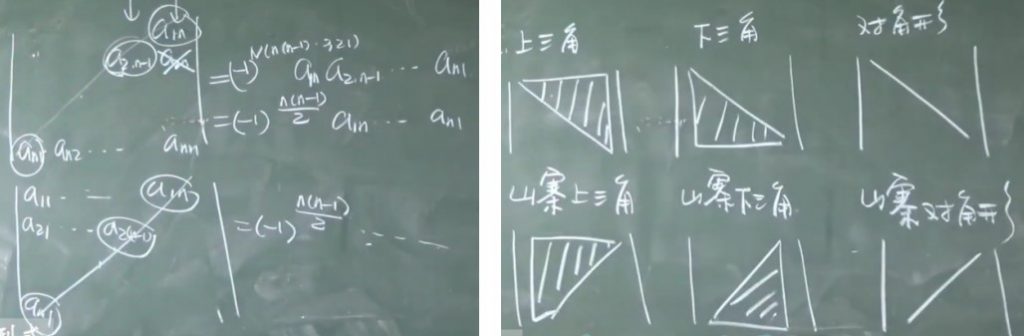 a₁ₙ
a₂.ₙ₋₁ a₂ₙ
= (-1)^{N(n(n-1)…321)} a₁ₙ a₂.ₙ₋₁ … aₙ₁
= (-1)^{n(n-1)/2} a₁ₙ … aₙ₁
aₙ₁ aₙ₂ … aₙₙ
a₁₁ … a₁ₙ
a₂₁ … a₂₍ₙ₋₁₎ = (-1)^{n(n-1)/2} …
aₙ₁
上三角 下三角 对角形
山寨上三角 山寨下三角 山寨对角形